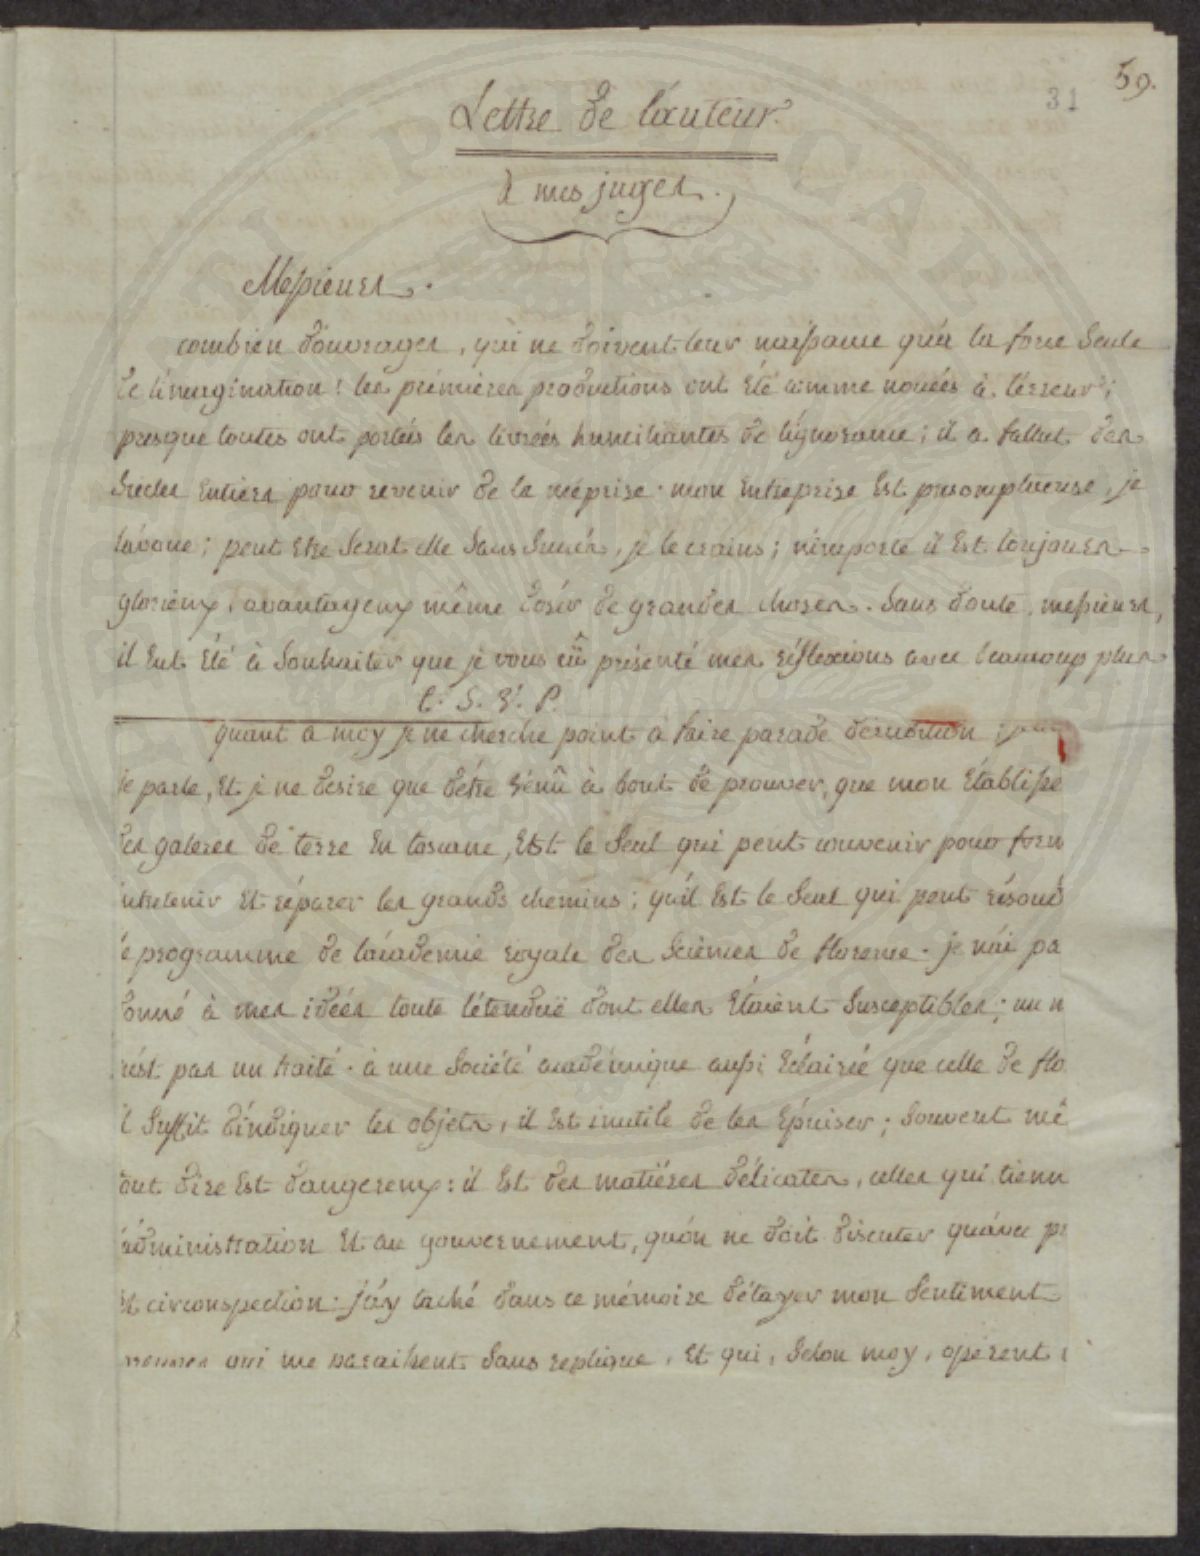 59.
31
Lettre de l'auteur.
à mes juges.
Messieurs.
combien d'ouvrages, qui ne doivent leur naissance qu'à la force seule
de l'imagination! les prémières productions ont été comme vouées à l'érreur;
presque toutes ont portées les livrées humiliantes de l'ignorance; il a fallut des
Siécles Entiers pour revenir de la méprise. mon Entreprise Est présomptueuse, je
l'avoue; peut Etre Serat elle Sans Succés, je le crains; n'importe il Est toujours
glorieux, avantageux même d'osér de grandes choses. Sans doute, messieurs,
il Eut Eté à Souhaiter que je vous eû présenté mes réflexions avec beaucoup plus
T. S. V. P.
quant a moy je ne cherche point à faire parade d'erudition ;
je parle, Et je ne desire que d'être vénû à bout de prouver, que mon Etablisse
des galeres de terre En toscane, Est le Seul qui peut convenir pour form
entretenir Et réparer les grands chemins; qu'il Est le Seul qui peut résoud
le programme de l'académie royale des Sciences de florence. je n'ai pa
donné à mes idées toute l'étenduë dont elles Etaient Susceptibles; un m
n'est pas un traité. à une Société académique aussi Eclairée que celle de flo
il Suffit d'indiquer les objets, il Est inutile de les Epuiser; Souvent mê
tout dire Est dangereux: il Est des matiéres délicates, celles qui tienn
l'administration Et au gouvernement, qu'on ne doit discuter qu'avec pr
Et circonspection. j'ay taché dans ce mémoire d'étayer mon Sentiment
preuves qui me paraissent Sans replique, Et qui, Selon moy, opérent